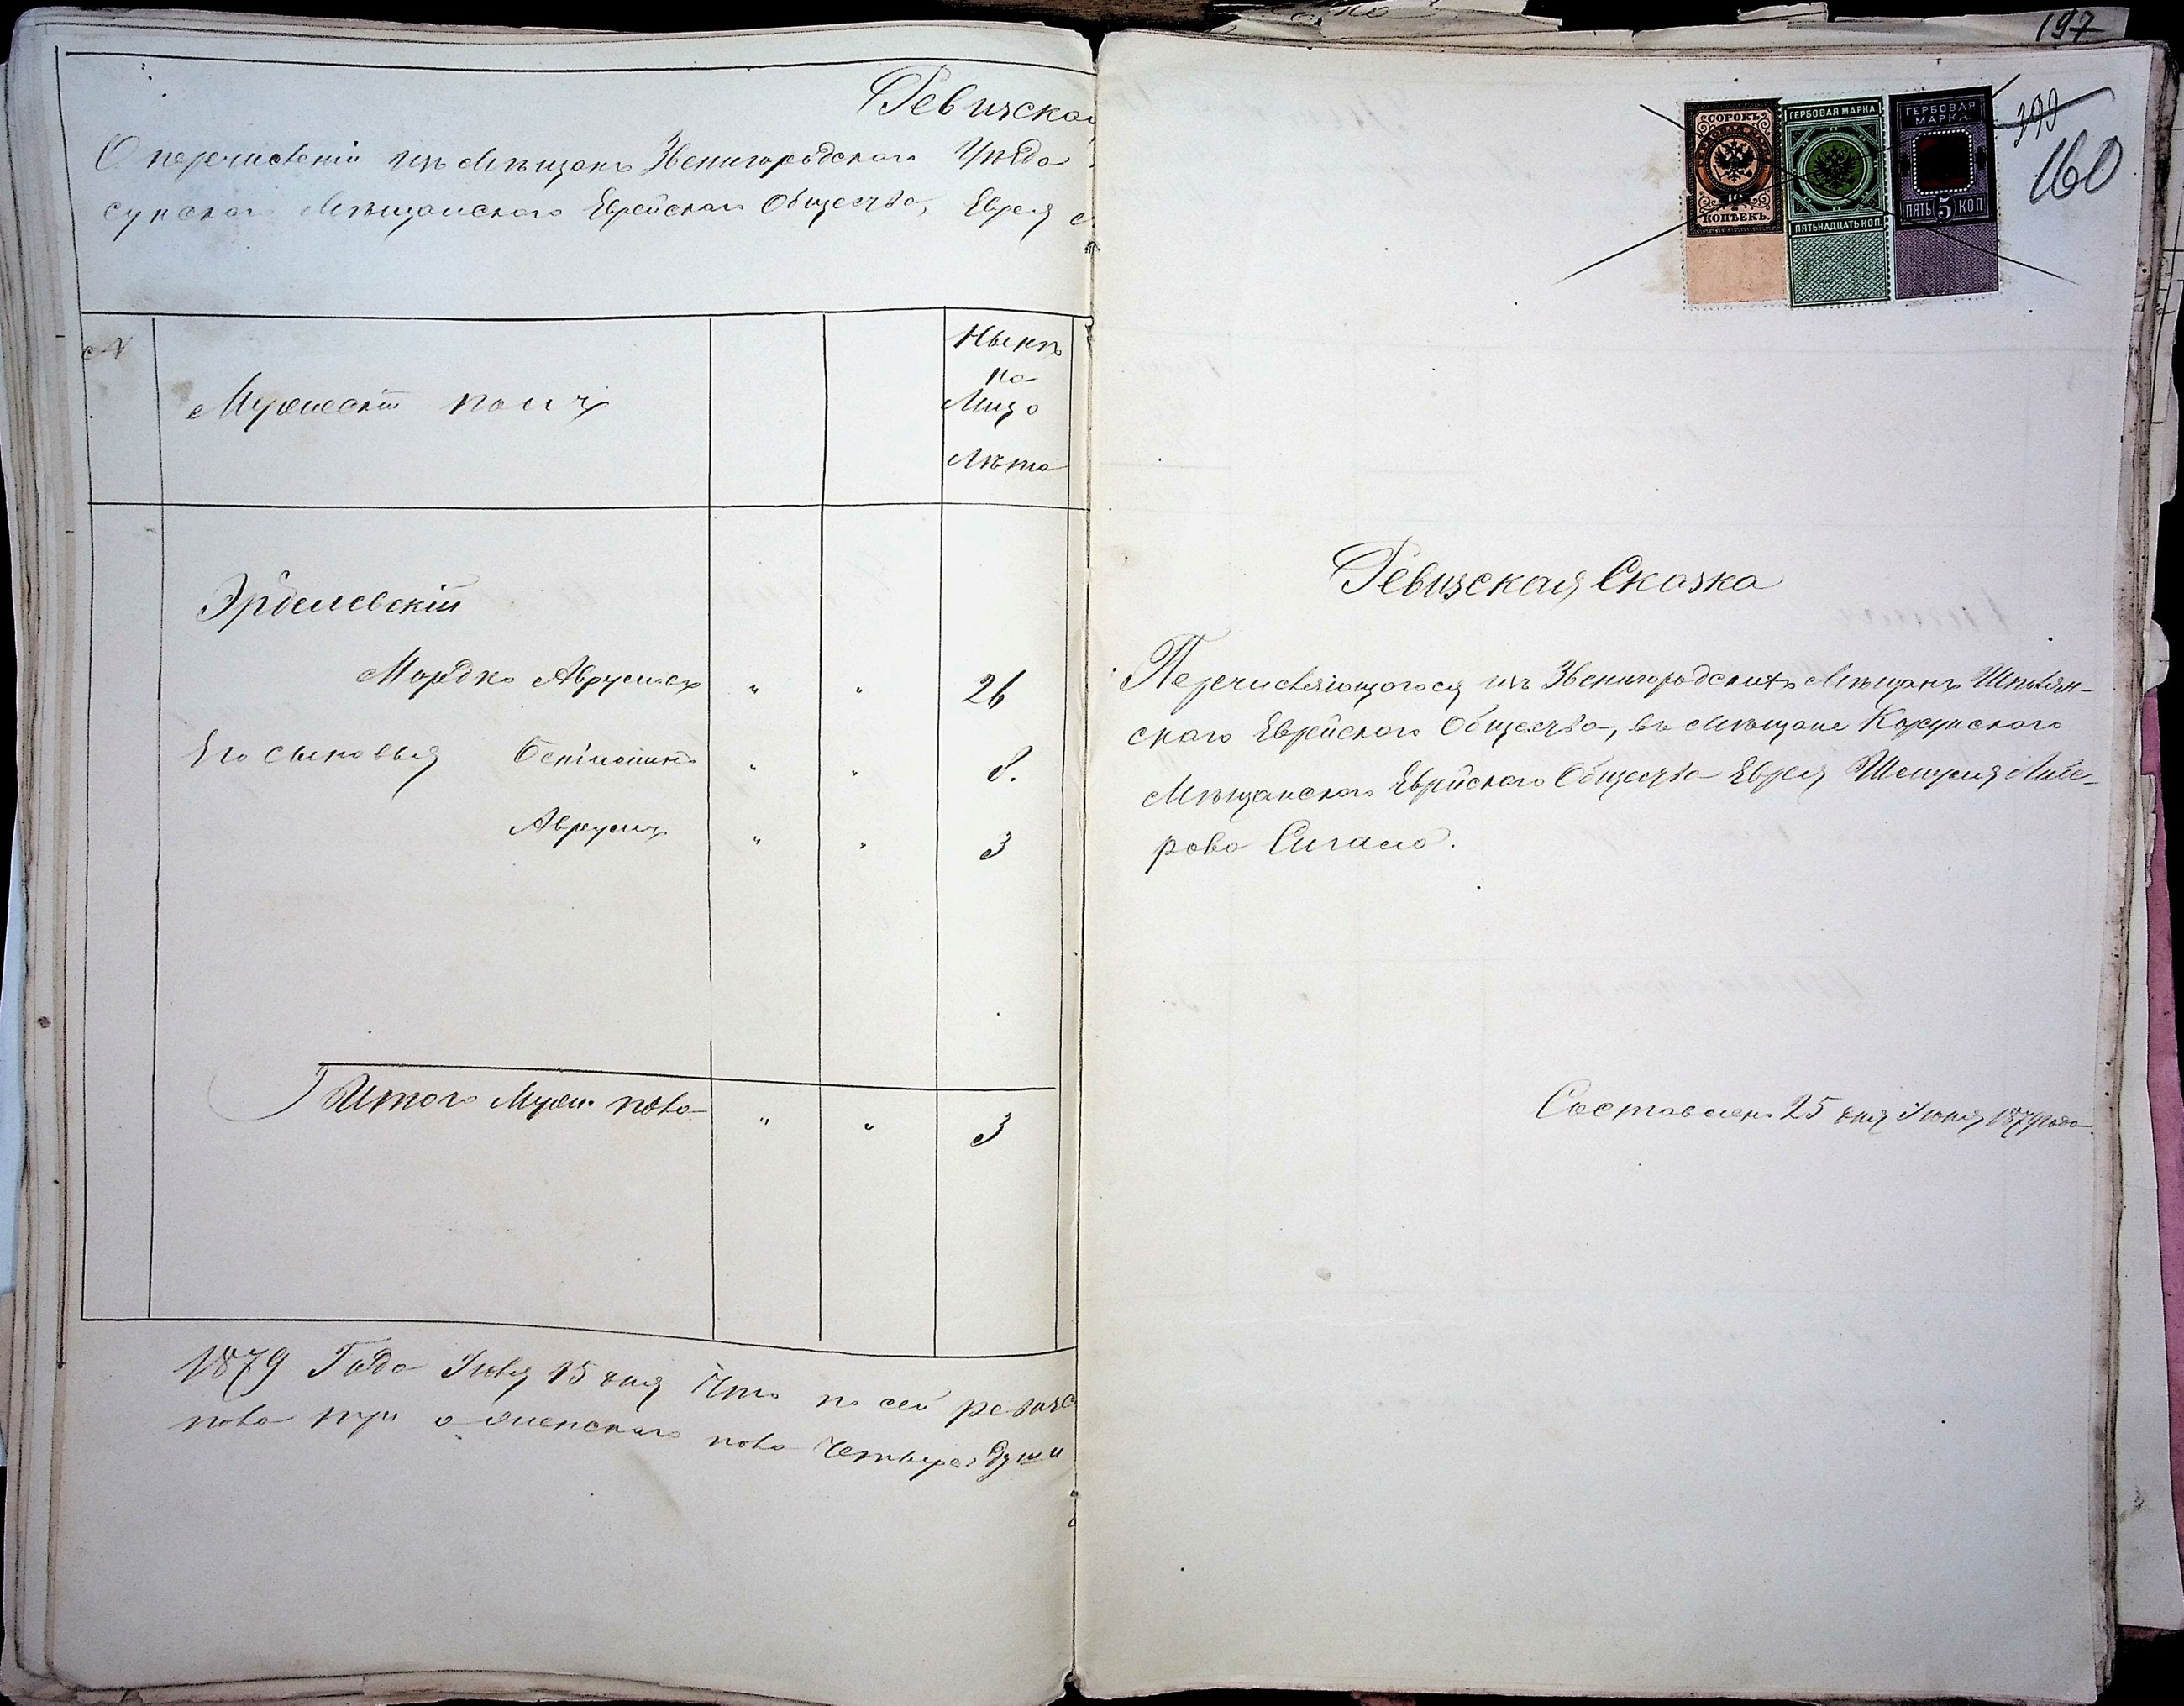 Ревизская
О перечисленіи изъ Мѣщанъ Звенигородскаго Уѣзда
сунскаго Мѣщанскаго Еврейскаго Общества, Еврея
№
Мужескій полъ
Нынѣ
на
Лицо
Лѣта
Эрделевскій
Мордко Аврумовъ " " 26
Его сыновья " " 8.
Аврумъ " " 3
Итого Муж. пола " " 3
1879 Года Іюля 15 дня Что по сей ревизс
пола три а женскаго пола Четыре души
197
199
160
СОРОКЪ
КОПѢЕКЪ.
ГЕРБОВАЯ МАРКА.
ПЯТЬНАДЦАТЬ КОП.
ГЕРБОВАЯ
МАРКА
ПЯТЬ 5 КОП
Ревизская Сказка
Перечисляющогося изъ Звенигородскихъ Мѣщанъ Шполян-
скаго Еврейскаго Общества, въ Мѣщане Корсунского
Мѣщанскаго Еврейскаго Общества Еврея Шмуля Лейзе-
рова Сигала.
Составлена 25 дня Іюня 1879 года